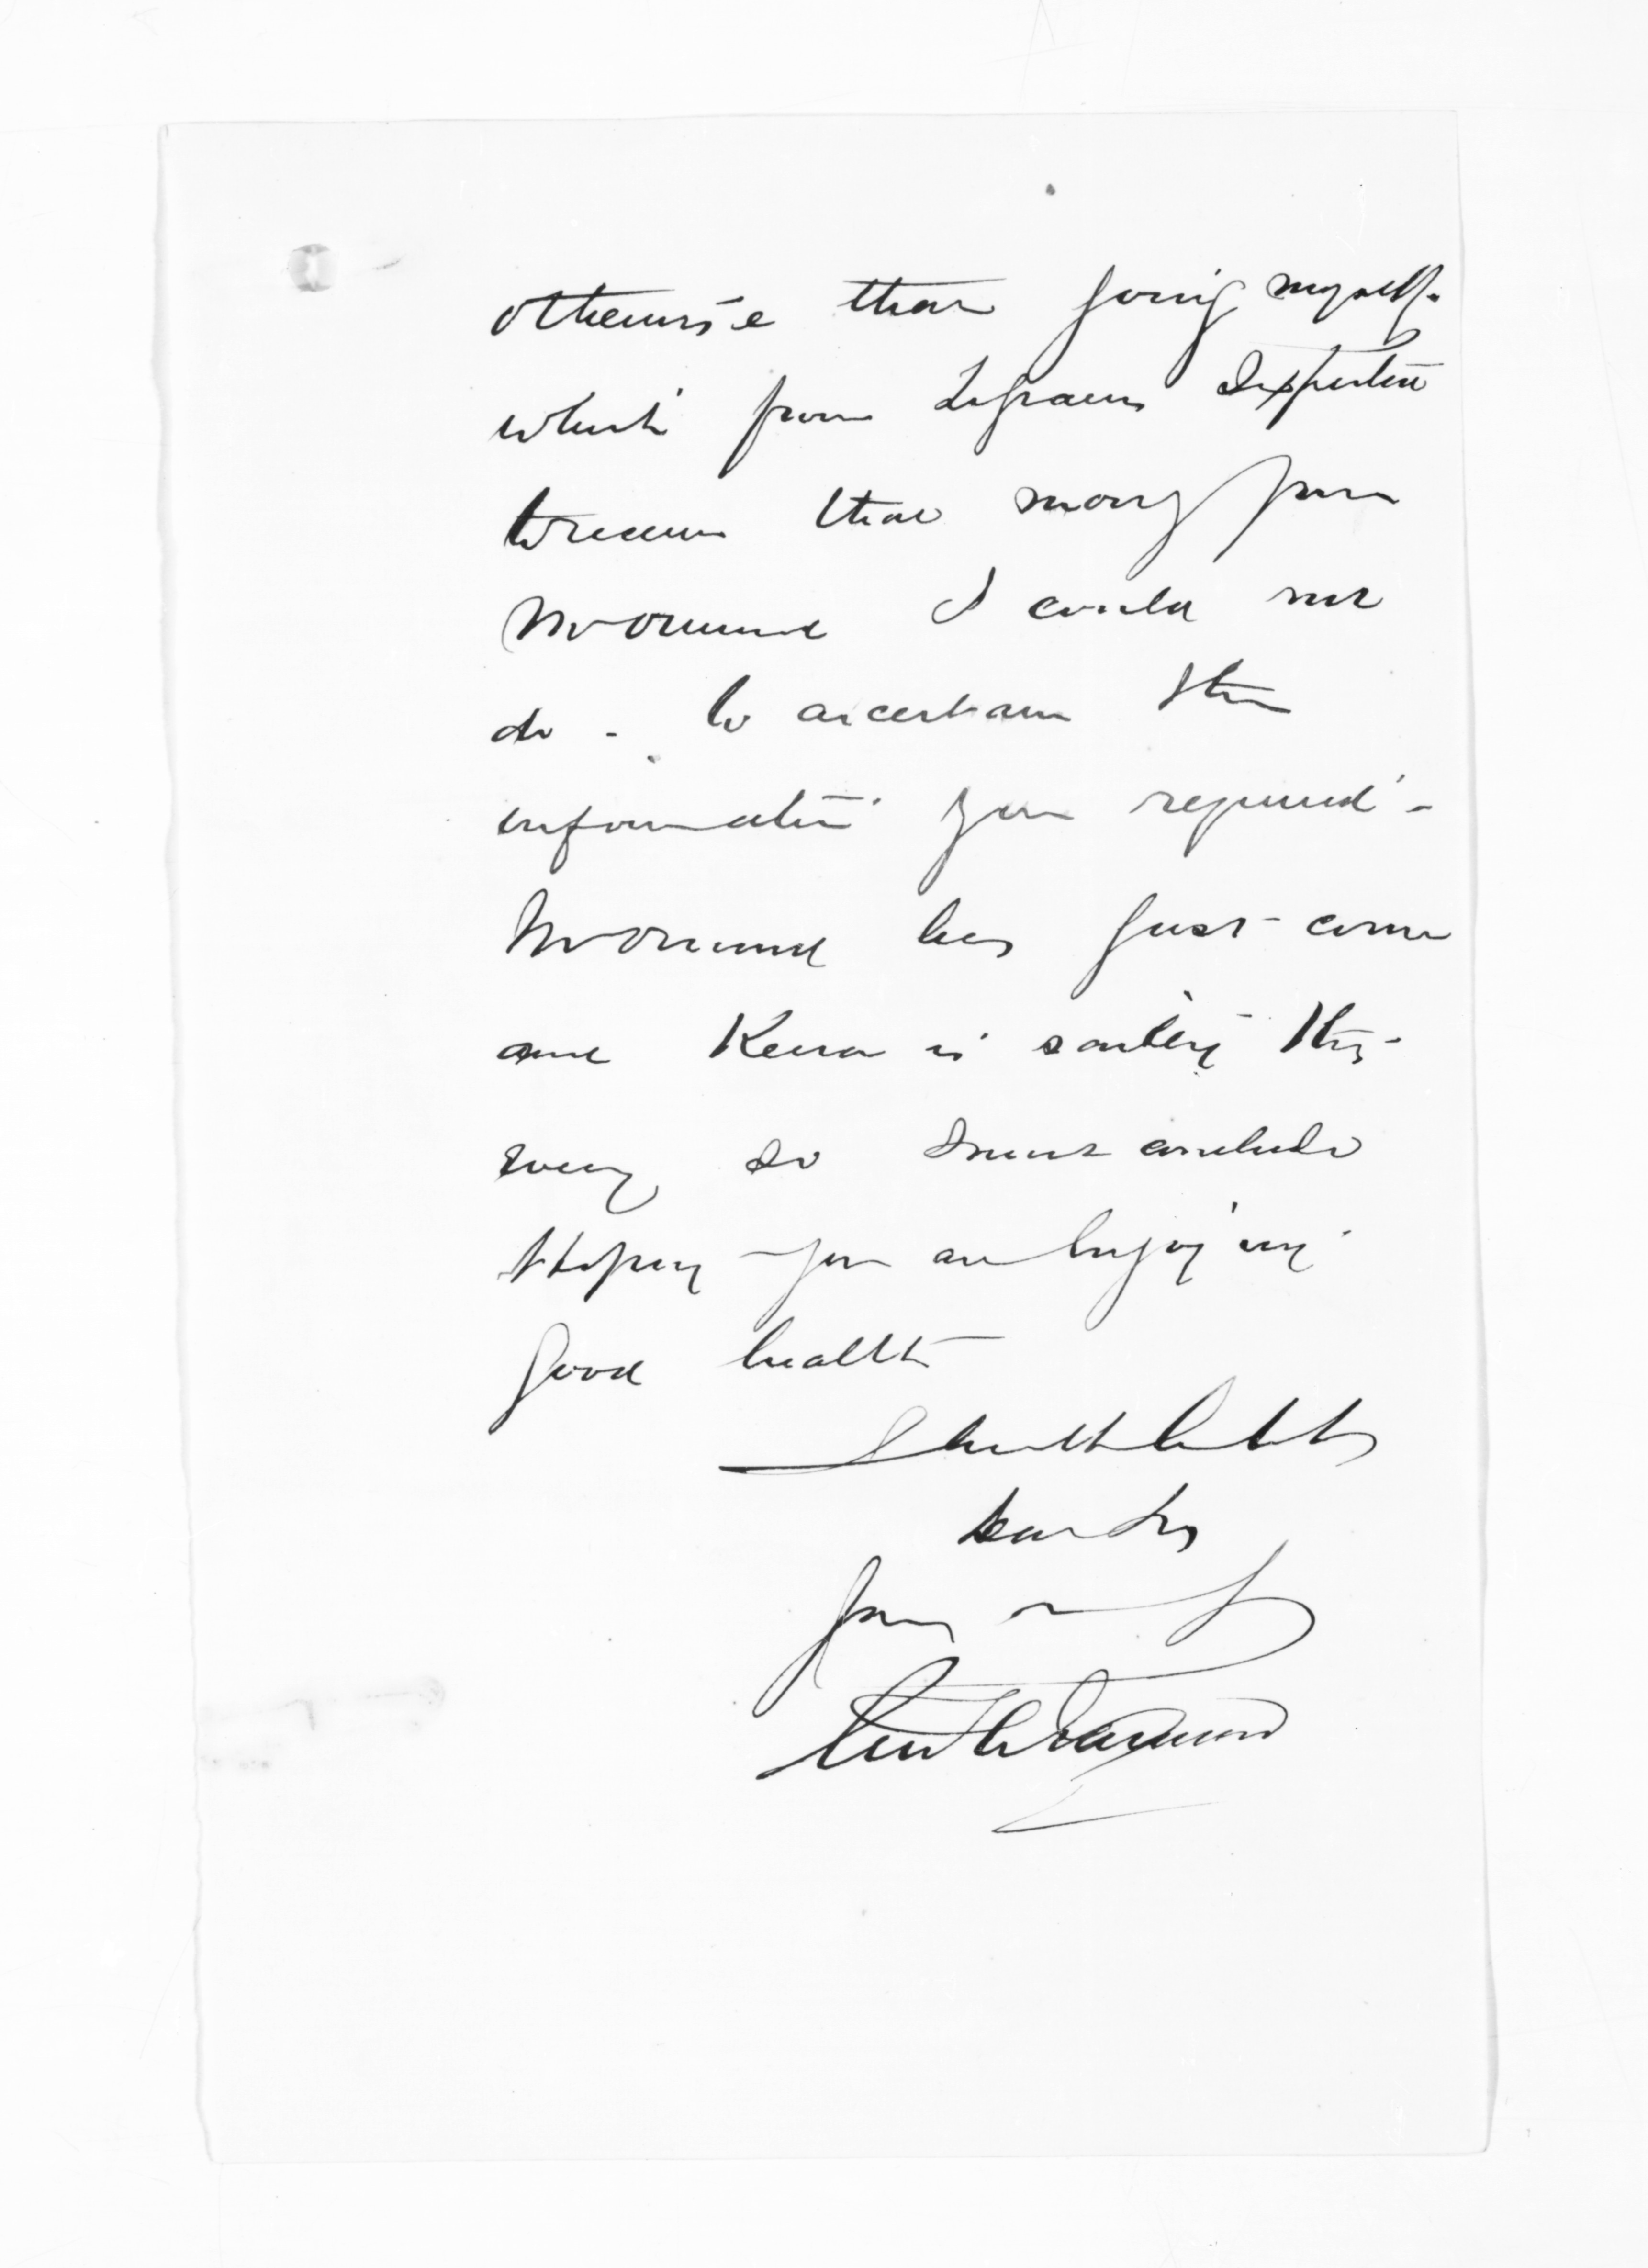 otherwise than going myself.
which from telegrams I expected
to receive that morng from
Mr Ormond I could not
do - to ascertain the
information you required -
Mr Ormond has just come
and Keera is sailing this
eveng so I must conclude
Hoping you are enjoying
good health
I
yours